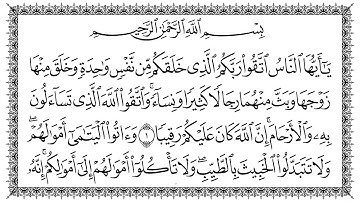 بِسْمِ اللَّهِ الرَّحْمَٰنِ الرَّحِيمِ
يَا أَيُّهَا النَّاسُ اتَّقُوا رَبَّكُمُ الَّذِي خَلَقَكُم مِّن نَّفْسٍ وَاحِدَةٍ وَخَلَقَ مِنْهَا
زَوْجَهَا وَبَثَّ مِنْهُمَا رِجَالًا كَثِيرًا وَنِسَاءً ۚ وَاتَّقُوا اللَّهَ الَّذِي تَسَاءَلُونَ
بِهِ وَالْأَرْحَامَ ۚ إِنَّ اللَّهَ كَانَ عَلَيْكُمْ رَقِيبًا ۝١ وَآتُوا الْيَتَامَىٰ أَمْوَالَهُمْ ۖ
وَلَا تَتَبَدَّلُوا الْخَبِيثَ بِالطَّيِّبِ ۖ وَلَا تَأْكُلُوا أَمْوَالَهُمْ إِلَىٰ أَمْوَالِكُمْ ۚ إِنَّهُ